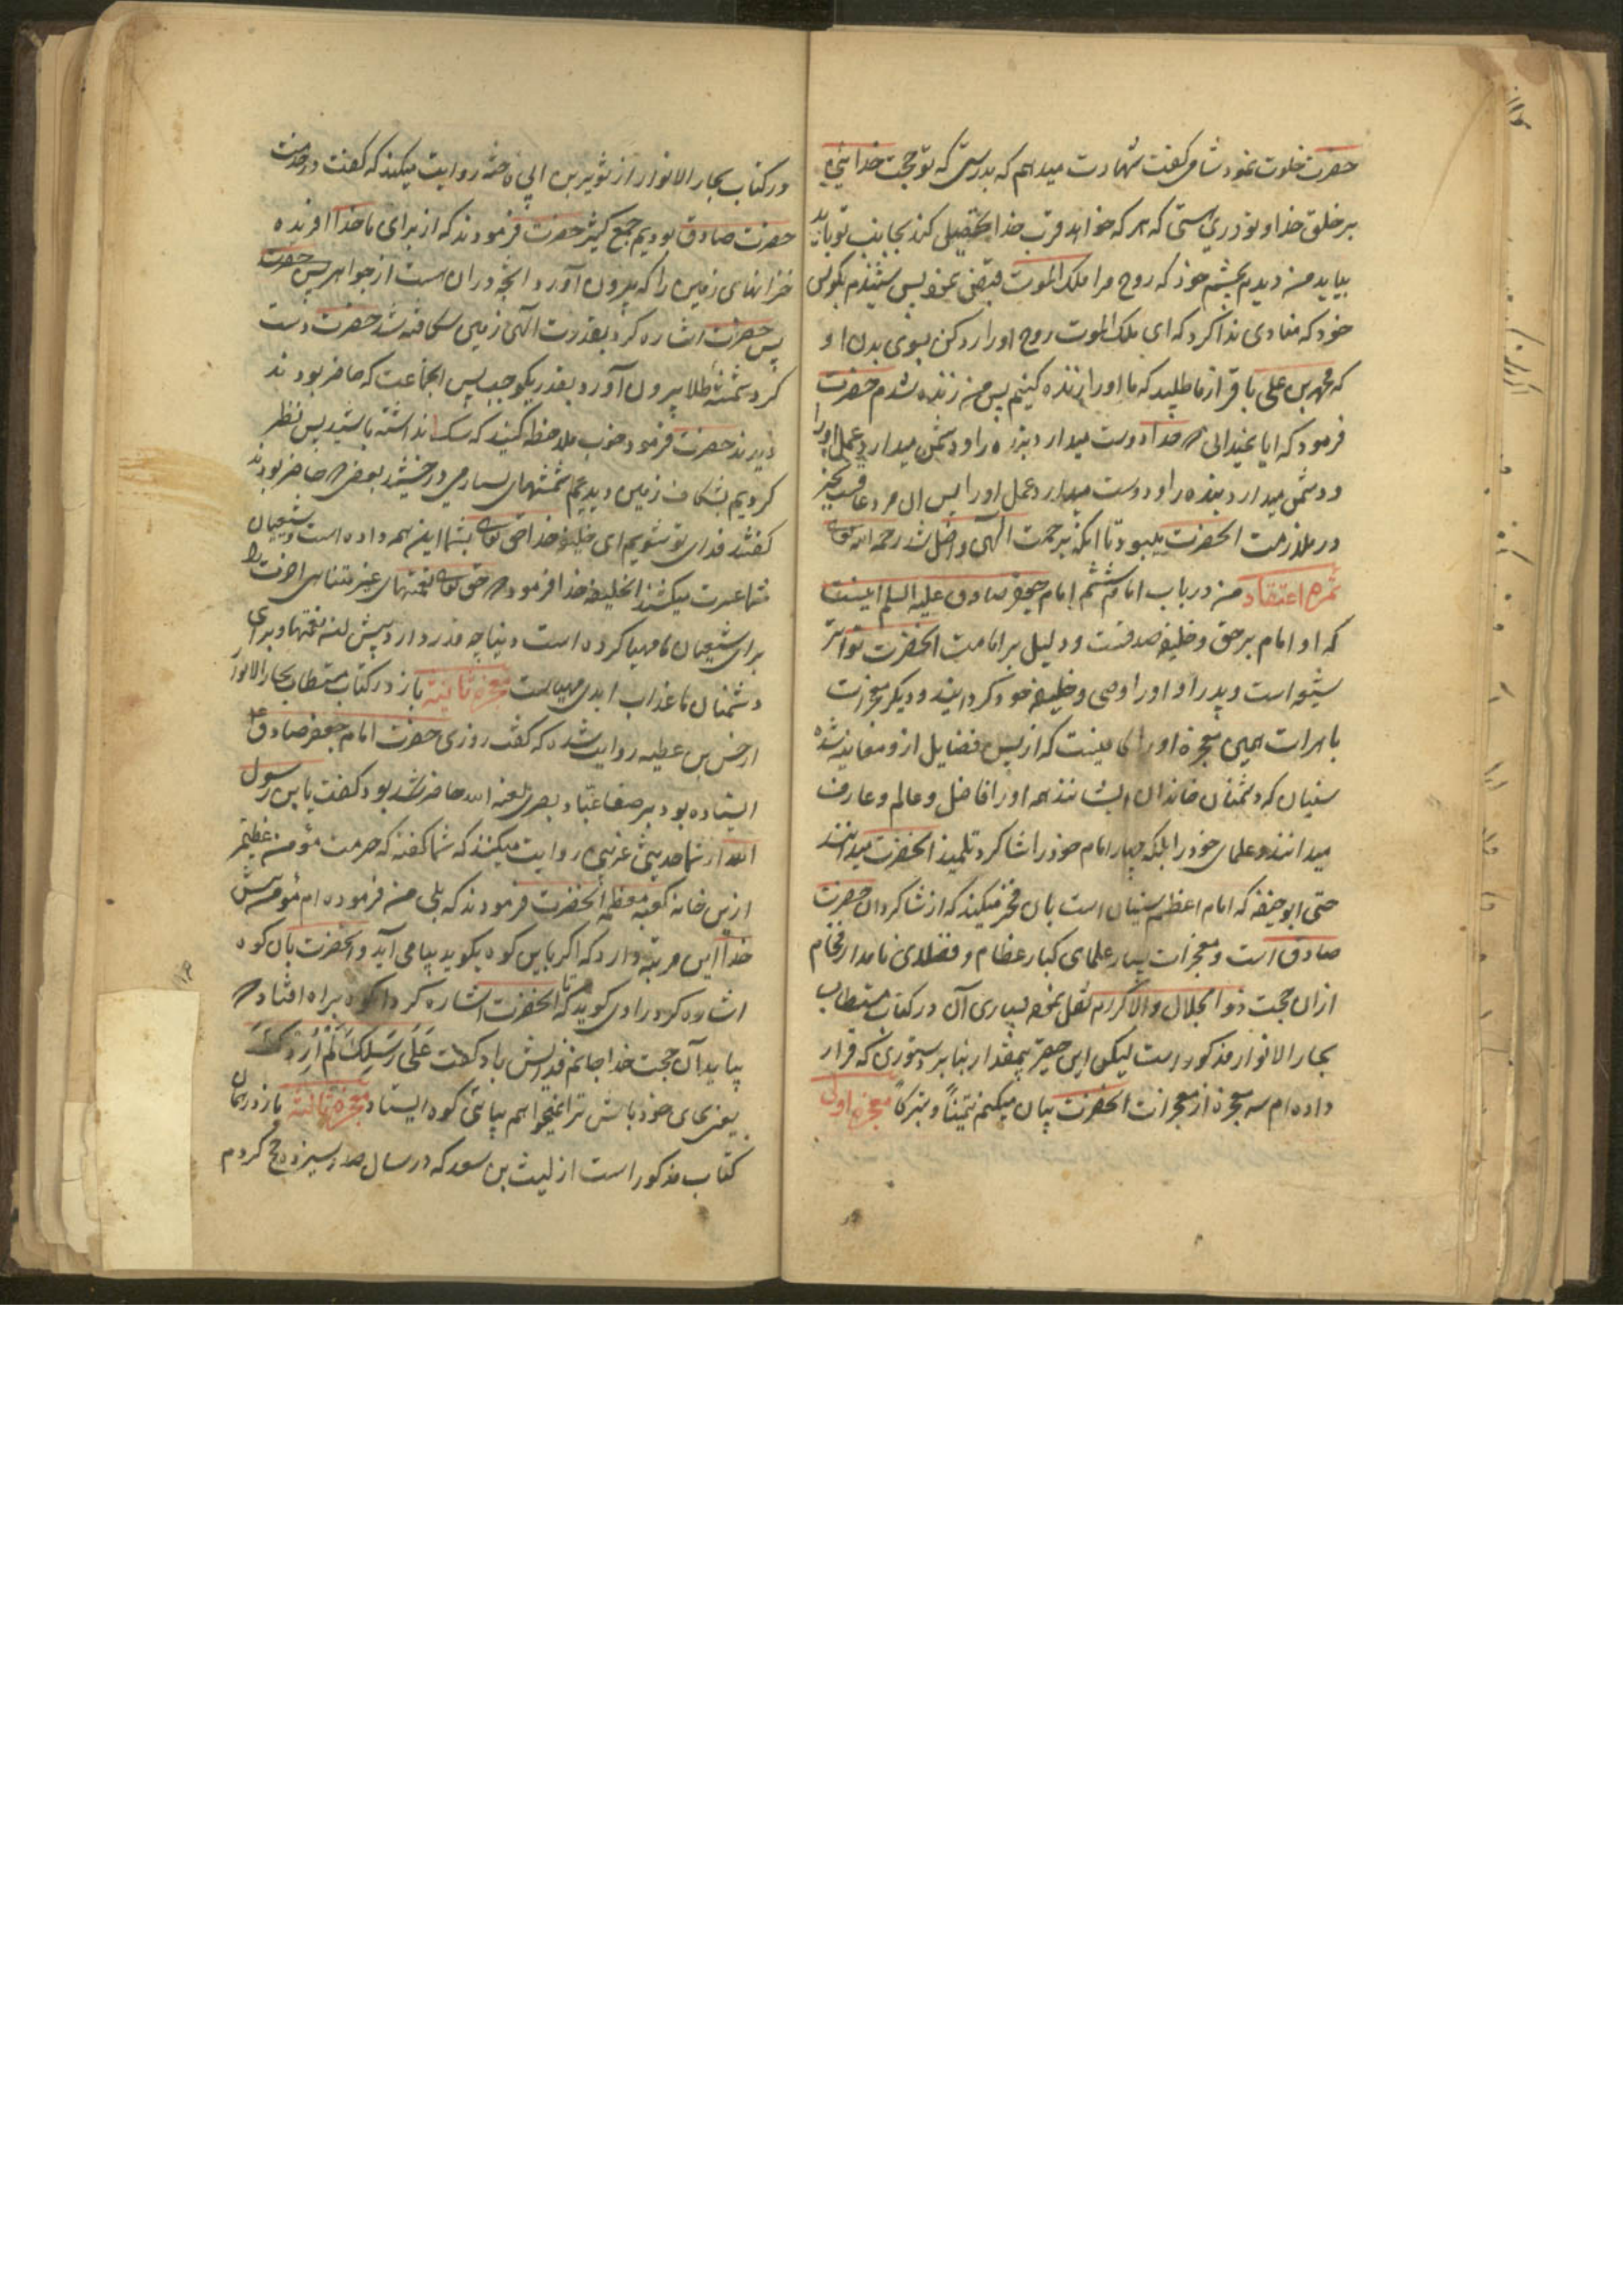 حضرت خلوت نمود شامی گفت شهادت میدهم که بدرستی که تو حجت خدایی
بر خلق خدا و تو دری هستی که هر که خواهد قرب خدا تحصیل کند بجانب تو باید
بیاید من دیدم بچشم خود که روح مرا ملک الموت قبض نمود پس شنیدم بگوش
خود که منادی ندا کرد که ای ملک الموت روح او را رد کن بسوی بدن او
که محمد بن علی باقر از ما طلبید که ما او را زنده کنیم پس من زنده شدم حضرت
فرمود که ایا نمیدانی که خدا دوست میدارد بنده را و دشمن میدارد عمل او را
و دشمن میدارد بنده را و دوست میدارد عمل او را پس ان مرد عاقبت بخیر
در ملازمت انحضرت میبود تا انکه برحمت الهی واصل شد رحمه الله تعالی
ثمره اعتقاد من در باب امام ششم امام جعفر صادق علیه السلم اینست
که او امام بر حق و خلیفه صدقست و دلیل بر امامت انحضرت تواتر
شیعه است و پدر او او را وصی و خلیفه خود گردانید و دیگر معجزات
باهرات همین معجزه او را کافیست که از بس فضایل از و معاینه شده
سنیان که دشمنان خاندان ایشانند همه او را فاضل و عالم و عارف
میدانند و علمای خود را بلکه چهار امام خود را شاگرد تلمیذ انحضرت میدانند
حتی ابو حنیفه که امام اعظم سنیان است بان فخر میکند که از شاگردان حضرت
صادق است و معجزات بسیار علمای کبار عظام و فضلای نامدار فخام
ازان حجت ذو الجلال والاکرام نقل نموده بسیاری آن در کتاب مستطاب
بحار الانوار مذکور است لیکن این حقیر بیمقدار بنا بر دستوری که قرار
داده ام سه معجزه از معجزات انحضرت بیان میکنم تیمناً و تبرکاً معجزه اول
در کتاب بحار الانوار از ثویر بن ابی فاخته روایت میکنند که گفت در خدمت
حضرت صادق بودیم جمع کثیر حضرت فرمودند که از برای ما خدا افریده
خزانهای زمین را که بیرون آورد انچه دران است از جواهر پس حضرت
پس حضرت اشاره کرد بقدرت الهی زمین شکافته شد حضرت دست
کرد شمشه طلا بیرون آورد بقدر یکوجب پس انجماعت که حاضر بودند
دیدند حضرت فرمود خوب ملاحظه کنید که شک نداشته باشید پس نظر
کردیم بشکاف زمین دیدیم شمشهای بسیار میدرخشید بعضی که حاضر بودند
گفتند فدای تو شویم ای خلیفه خدا حق تعالی بشما این همه داده است و شیعیان
شما عسرت میکشند انخلیفه خدا فرمود که حق تعالی نعمتهای غیر متناهی اخرت را
برای شیعیان ما مهیا کرده است دنیا چه قدر دارد پیش آن نعمتها و برای
دشمنان ما عذاب ابدی مهیاست معجزه ثانیه باز در کتاب مستطاب بحار الانوار
از حسن بن عطیه روایت شده که گفت روزی حضرت امام جعفر صادق ع
ایستاده بود بر صفا عباد بصری لعنه الله حاضر شد بود گفت یابن رسول
الله از شما حدیثی غریبی روایت میکنند که شما گفته که حرمت مؤمن عظیمتر
ازین خانه کعبه معظمه انحضرت فرمودند که بلی من فرموده ام مؤمن پیش
خدا این مرتبه دارد که اگر باین کوه بگوید بیا می آید و انحضرت بان کوه
اشاره کرد راوی گوید که تا انحضرت اشاره کرد ان کوه براه افتاد که
بیاید آن حجت خدا جانم فدایش باد گفت عَلَی رِسْلِکَ لَمْ أُرِدْکَ
یعنی بجای خود باش ترا نمیخواهم بیایی کوه ایستاد معجزه ثالثه باز در همان
کتاب مذکور است از لیث بن سعد که در سال صد و سیزده حج کردم